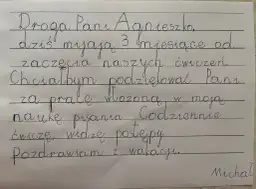 Droga Pani Agnieszko,
dziś mijają 3 miesiące od
zaczęcia naszych ćwiczeń.
Chciałbym podziękować Pani
za pracę włożoną w moją
naukę pisania. Codziennie
ćwiczę widzę postępy.
Pozdrawiam z wakacji.
Michał